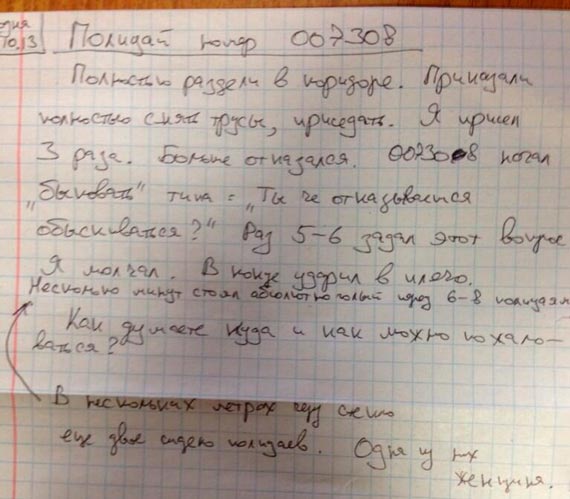 одня
10.13
Полицай номер 007308
Полностью раздели в коридоре. Приказали
полностью снять трусы, приседать. Я присел
3 раза. Больше отказался. 007308 начал
„быковать" типа = „Ты че отказываешся
обыскиваться?" Раз 5-6 задал этот вопрос
Я молчал. В конце ударил в плечо.
Несколько минут стоял абсолютно голый перед 6-8 полицаям
Как думаете куда и как можно пожало-
ваться?
В нескольких метрах
еще двое сидело полицаев. Одна из них
женщина.